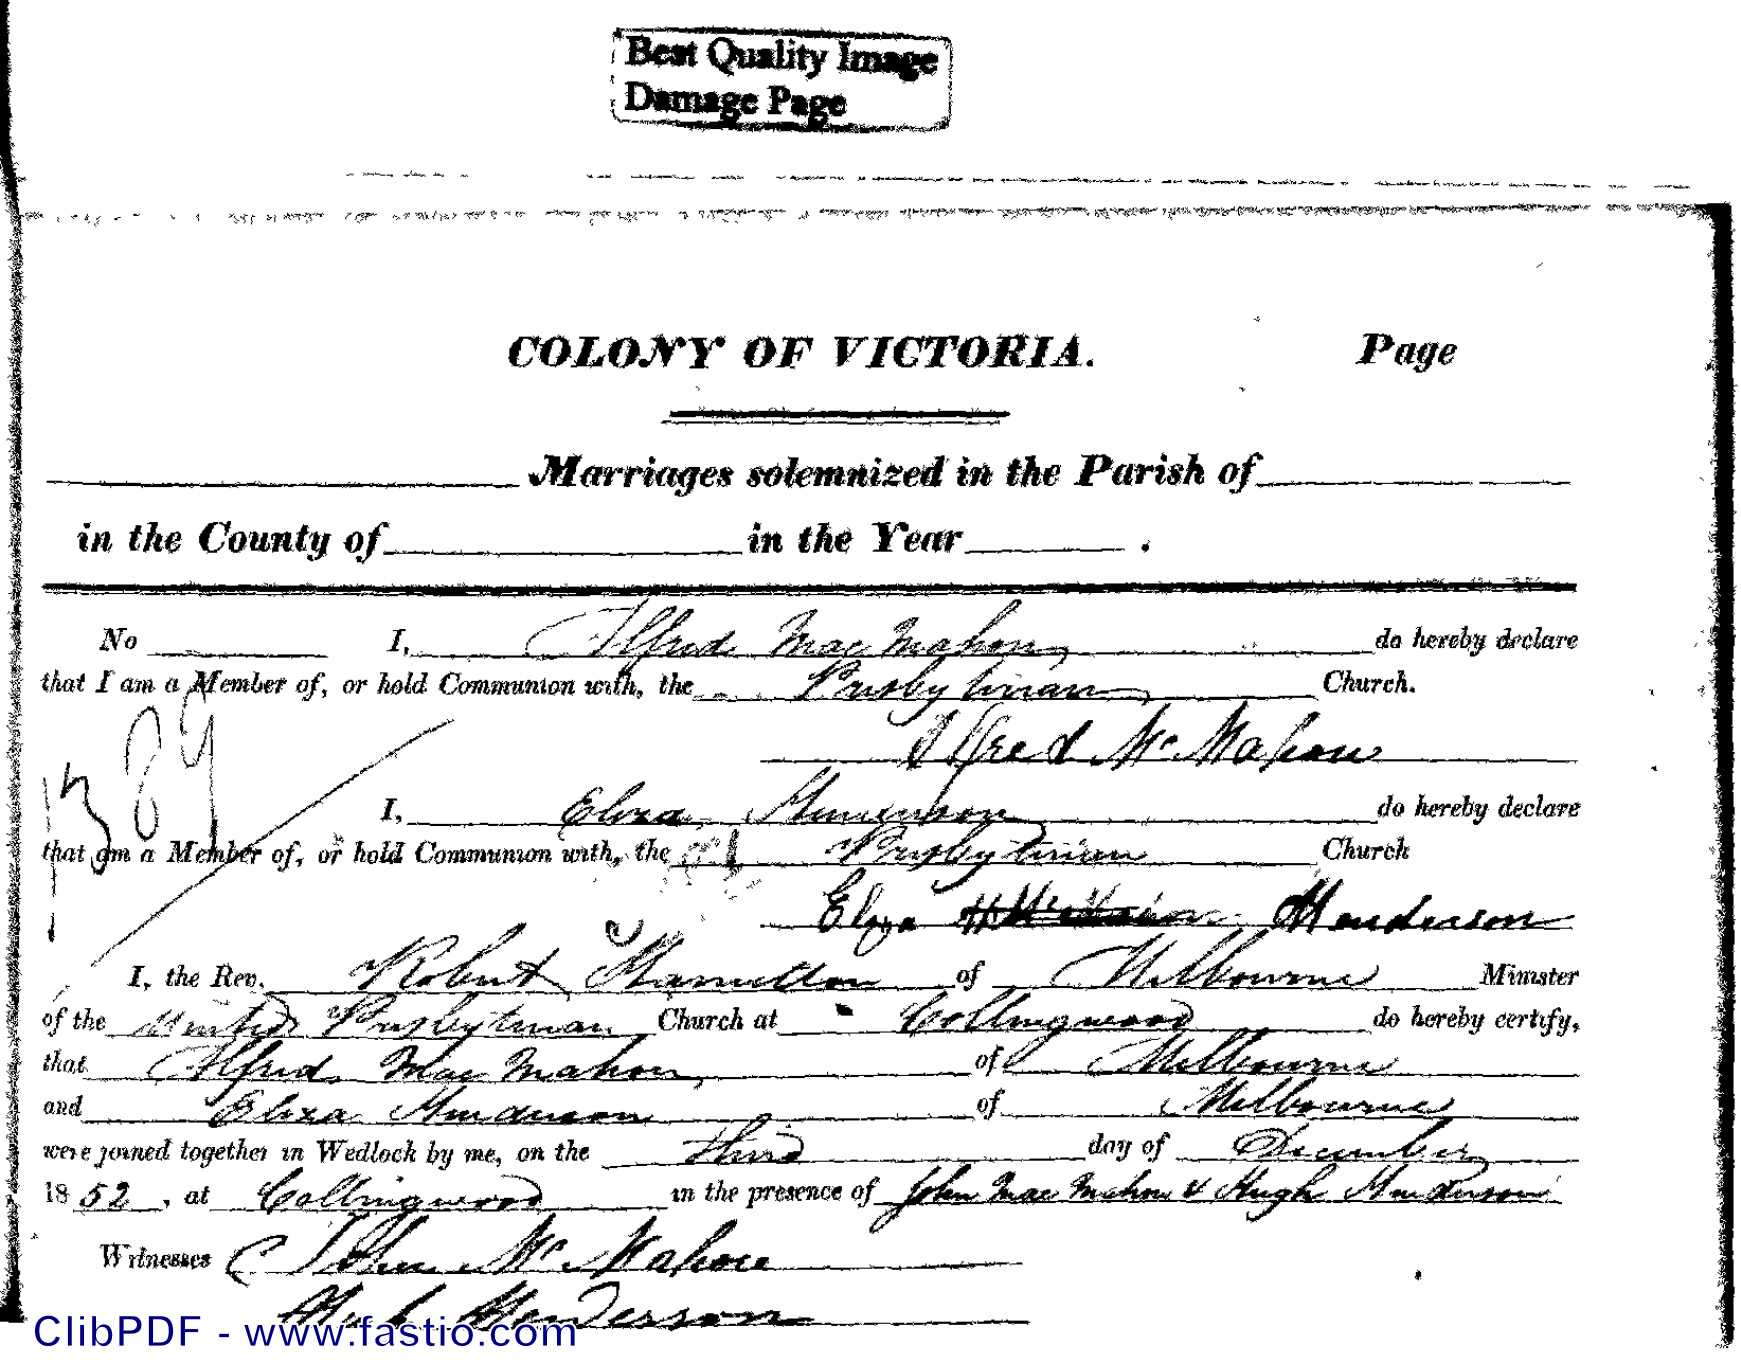 Best Quality Image
Damage Page
COLONY OF VICTORIA. Page
Marriages solemnized in the Parish of
in the County of in the Year .
No I, Alfred Mac Mahon do hereby declare
that I am a Member of, or hold Communion with, the Presbyterian Church.
Alfred Mc Mahon
I, Eliza Henderson do hereby declare
that am a Member of, or hold Communion with, the Presbyterian Church
Eliza Henderson
I, the Rev. Robert Hamilton of Melbourne Minister
of the United Presbyterian Church at Collingwood do hereby certify,
that Alfred Mac Mahon of Melbourne
and Eliza Henderson of Melbourne
were joined together in Wedlock by me, on the third day of December
1852, at Collingwood in the presence of John Mac Mahon & Hugh Henderson
Witnesses John Mc Mahon
Hugh Henderson
ClibPDF - www.fastio.com